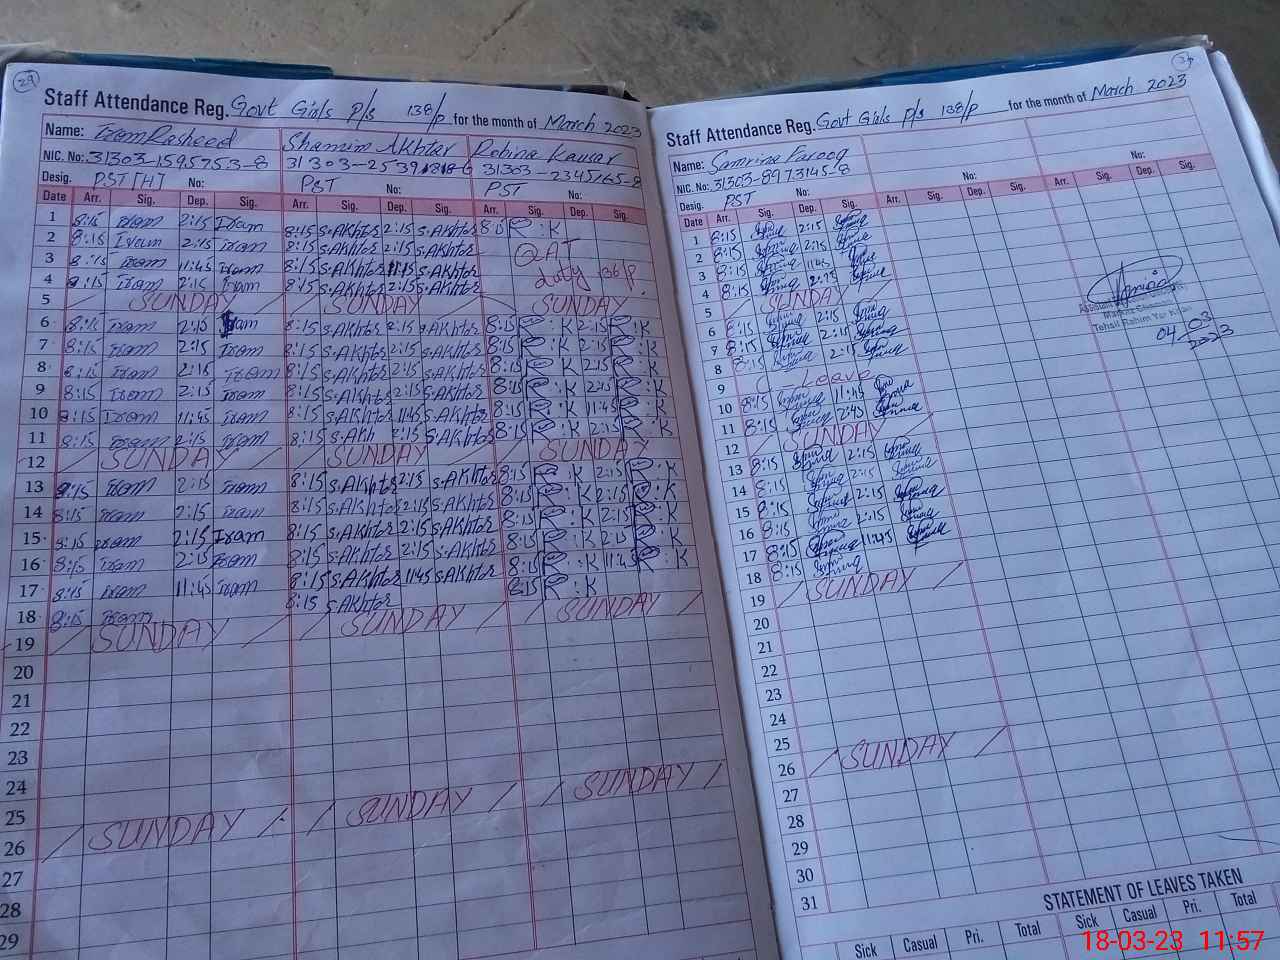 29
Staff Attendance Reg. Govt Girls P/s 138/P for the month of March 2023
Name: Iram Rasheed Shamim Akhtar Robina Kausar
NIC. No: 31303-1595753-8 31303-2345165-8
Desig. PST [H] No: PST No: PST
Date Arr. Sig. Dep. Sig. Arr. Sig. Dep. Sig. Arr. Sig. Dep. Sig.
1 8:15 Iram 2:15 Iram 8:15 S.Akhtar 2:15 S.Akhtar 8:15 R:K
2 8:15 Iram 2:15 Iram 8:15 S.Akhtar 2:15 S.Akhtar QAT
3 8:15 Iram 11:45 Iram 8:15 S.Akhtar 11:15 S.Akhtar duty 136/P.
4 8:15 Iram 2:15 Iram 8:15 S.Akhtar 2:15 S.Akhtar
5 SUNDAY SUNDAY SUNDAY
6 8:15 Iram 2:15 Iram 8:15 S.Akhtar 2:15 S.Akhtar 8:15 R:K 2:15 R:K
7 8:15 Iram 2:15 Iram 8:15 S.Akhtar 2:15 S.Akhtar 8:15 R:K 2:15 R:K
8 8:15 Iram 2:15 Iram 8:15 S.Akhtar 2:15 S.Akhtar 8:15 R:K 2:15 R:K
9 8:15 Iram 2:15 Iram 8:15 S.Akhtar 2:15 S.Akhtar 8:15 R:K 2:15 R:K
10 8:15 Iram 11:45 Iram 8:15 S.Akhtar 11:45 S.Akhtar 8:15 R:K 11:45 R:K
11 8:15 Iram 2:15 Iram 8:15 S.Akh 2:15 S.Akhtar 8:15 R:K 2:15 R:K
12 SUNDAY SUNDAY SUNDAY
13 8:15 Iram 2:15 Iram 8:15 S.Akhtar 2:15 S.Akhtar 8:15 R:K 2:15 R:K
14 8:15 Iram 2:15 Iram 8:15 S.Akhtar 2:15 S.Akhtar 8:15 R:K 2:15 R:K
15 8:15 Iram 2:15 Iram 8:15 S.Akhtar 2:15 S.Akhtar 8:15 R:K 2:15 R:K
16 8:15 Iram 2:15 Iram 8:15 S.Akhtar 2:15 S.Akhtar 8:15 R:K 2:15 R:K
17 8:15 Iram 11:45 Iram 8:15 S.Akhtar 11:45 S.Akhtar 8:15 R:K 11:45 R:K
18 8:15 Iram 8:15 S.Akhtar 8:15 R:K
19 SUNDAY SUNDAY SUNDAY
20
21
22
23
24
25
26 SUNDAY SUNDAY SUNDAY
27
28
29
Staff Attendance Reg. Govt Girls P/s 138/P for the month of March 2023
Name: Samrina Farooq
NIC. No: 31303-8973145-8 No: No:
Desig. PST
Date Arr. Sig. Dep. Sig. Arr. Sig. Dep. Sig. Arr. Sig. Dep. Sig.
1 8:15 2:15
2 8:15 2:15
3 8:15 11:45
4 8:15
5 SUNDAY
6 8:15 2:15
7 8:15 2:15
8 8:15 2:15
9 Leave
10 8:15 11:45
11 8:15 2:45
12 SUNDAY
13 8:15 2:15
14 8:15
15 8:15 2:15
16 8:15 2:15
17 8:15 11:45
18 8:15
19 SUNDAY
20
21
22
23
24
25
26 SUNDAY
27
28
29
30
31
Tehsil Rahim Yar Khan
04 03
2023
STATEMENT OF LEAVES TAKEN
Sick Casual Pri. Total Sick Casual Pri. Total Sick
18-03-23 11:57